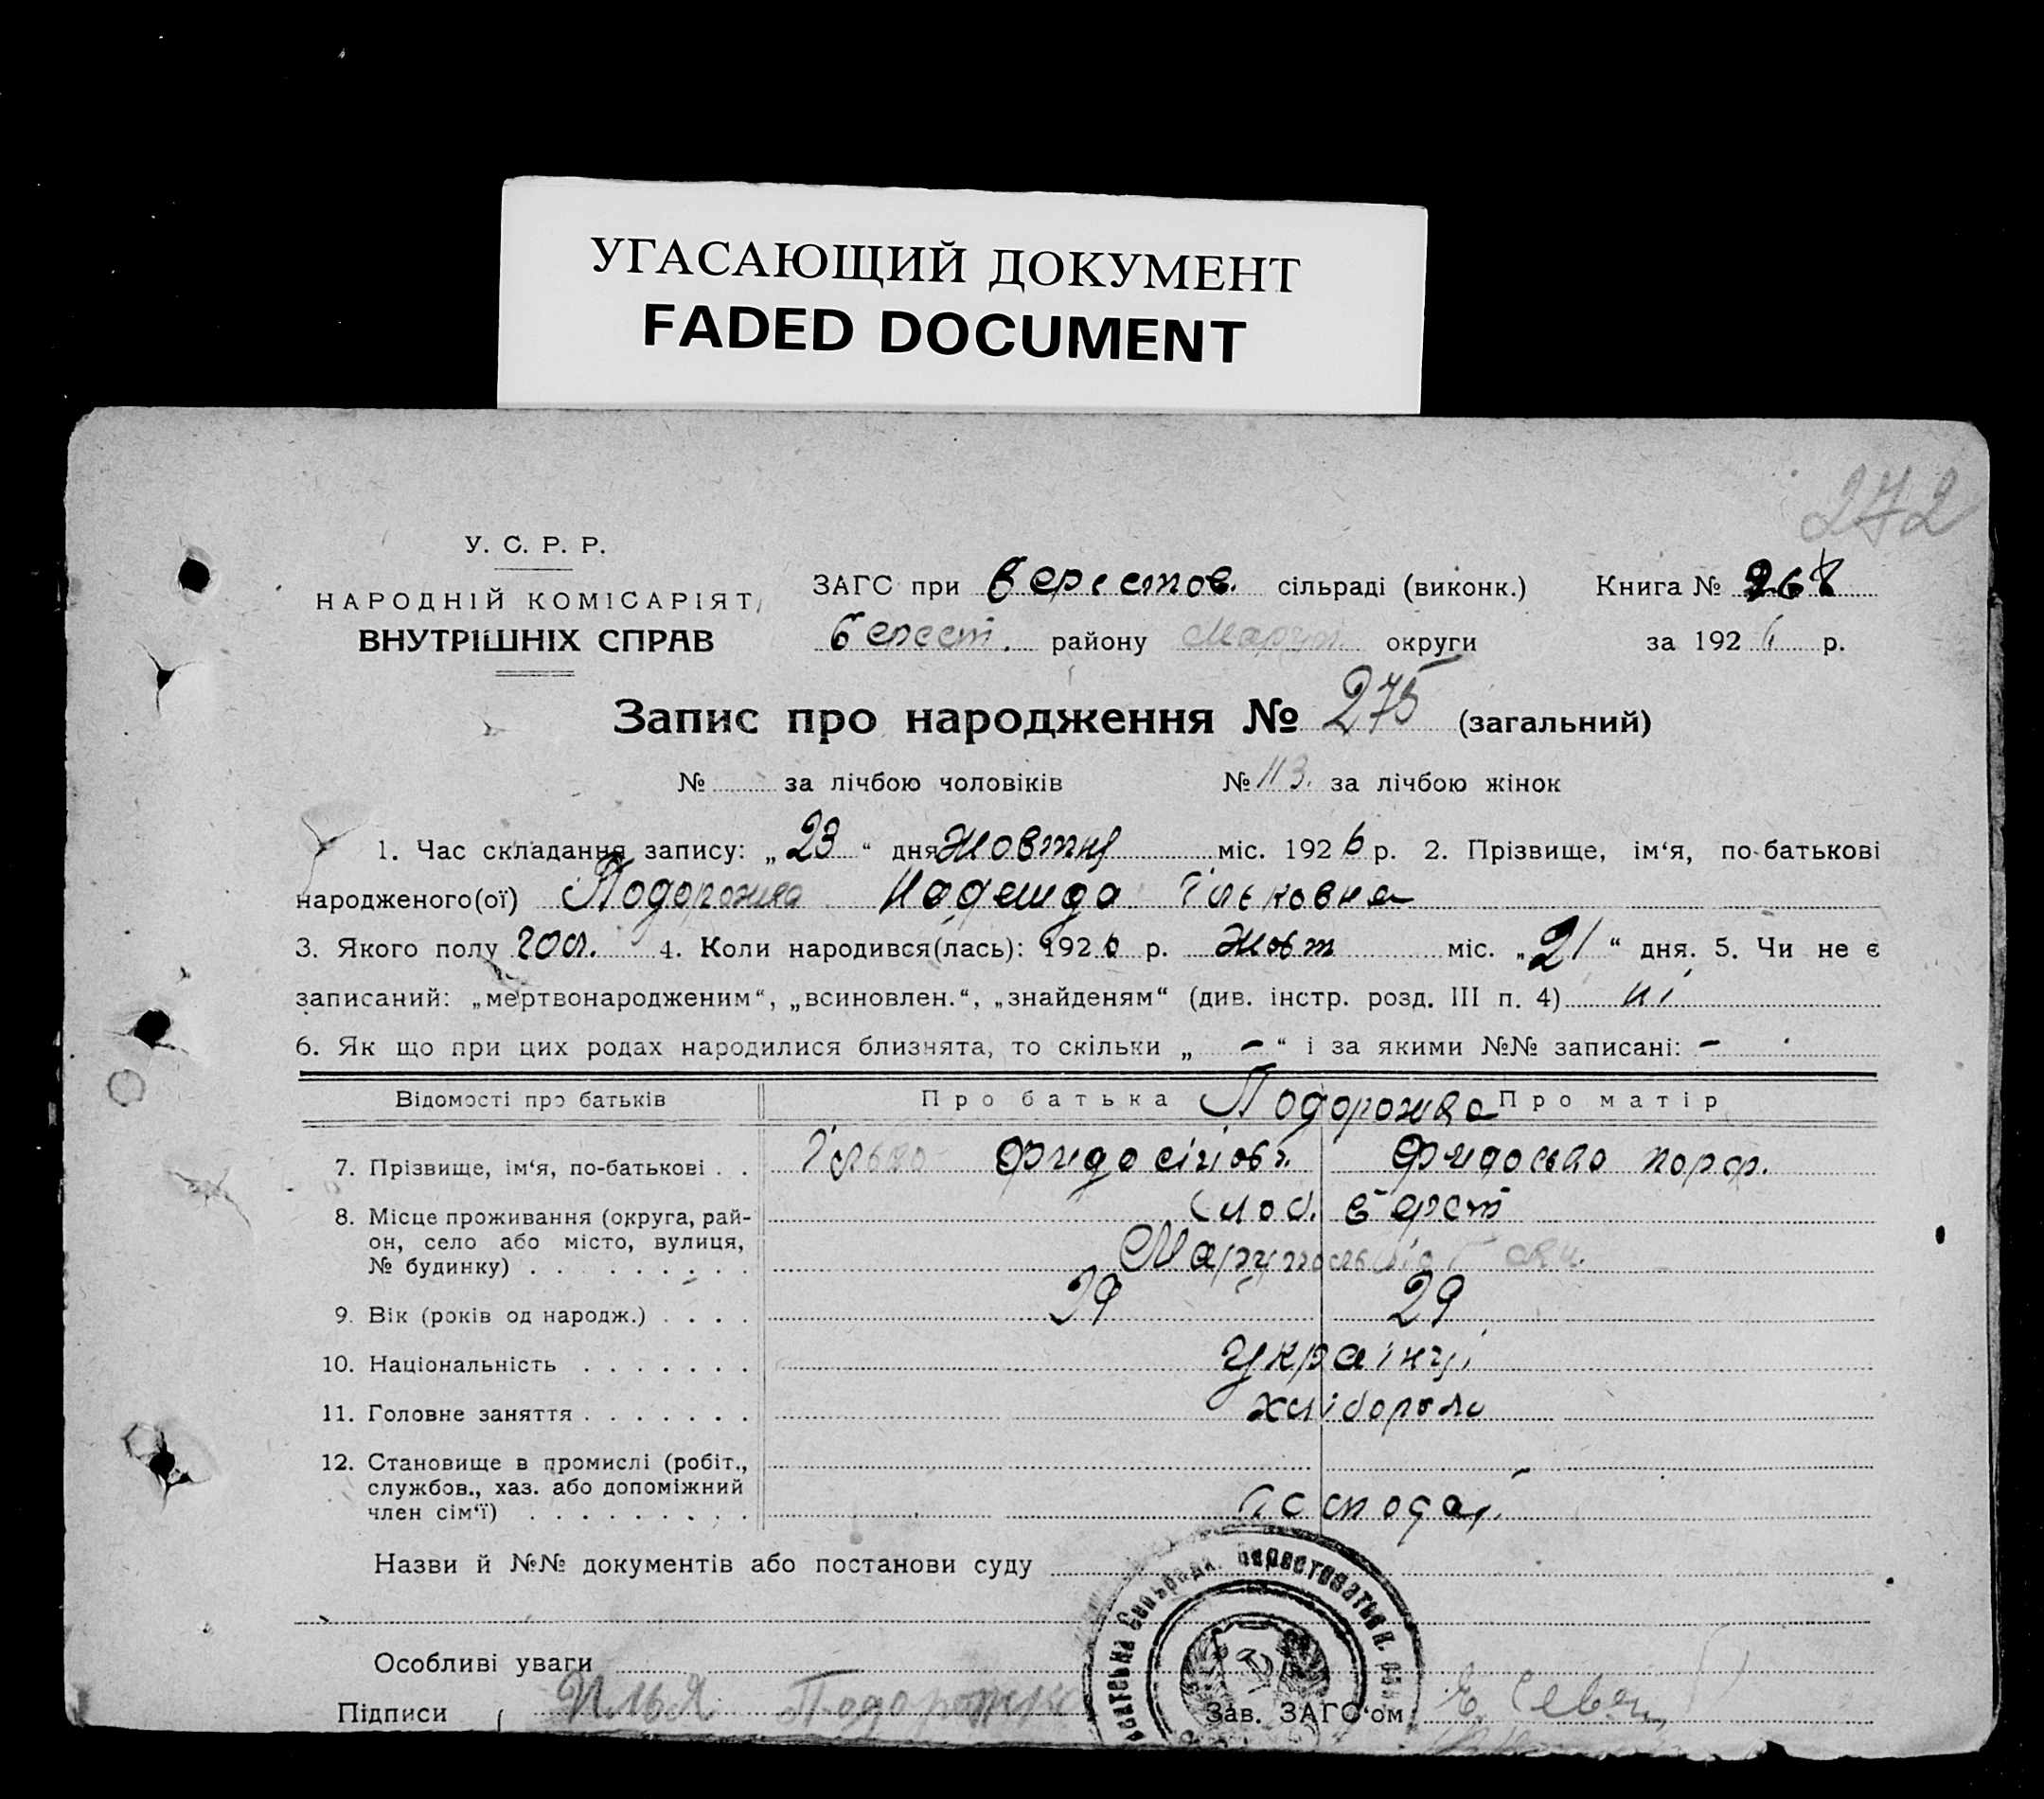 УГАСАЮЩИЙ ДОКУМЕНТ
FADED DOCUMENT
272
У. С. Р. Р.
НАРОДНІЙ КОМІСАРІЯТ
ВНУТРІШНІХ СПРАВ
ЗАГС при Берестов. сільраді (виконк.) Книга № 268
Берест. району Маріуп. округи за 1926 р.
Запис про народження № 275 (загальний)
№ за лічбою чоловіків № 113. за лічбою жінок
1. Час складання запису: „ 23 “ дня Жовтня міс. 1926 р. 2. Прізвище, ім‘я, по-батькові
народженого(ої) Подорожка Надежда
3. Якого полу 4. Коли народився(лась): 1926 р. Жовт міс. „ 21 “ дня. 5. Чи не є
записаний: „мертвонародженим“, „всиновлен.“, „знайденям“ (див. інстр. розд. III п. 4) ні
6. Як що при цих родах народилися близнята, то скільки „ – “ і за якими №№ записані: –
Відомості про батьків Про батька Подорожка Про матір
7. Прізвище, ім‘я, по-батькові . .
8. Місце проживання (округа, рай-
он, село або місто, вулиця,
№ будинку) . . . . . . . .
9. Вік (років од народж.) . . . . 29 29
10. Національність . . . . . . . українці
11. Головне заняття . . . . . . . хлібороби
12. Становище в промислі (робіт.,
службов., хаз. або допоміжний
член сім‘ї) . . . . . . . . . Господар.
Назви й №№ документів або постанови суду
Особливі уваги
Підписи Илья Подорожко Зав. ЗАГС‘ом